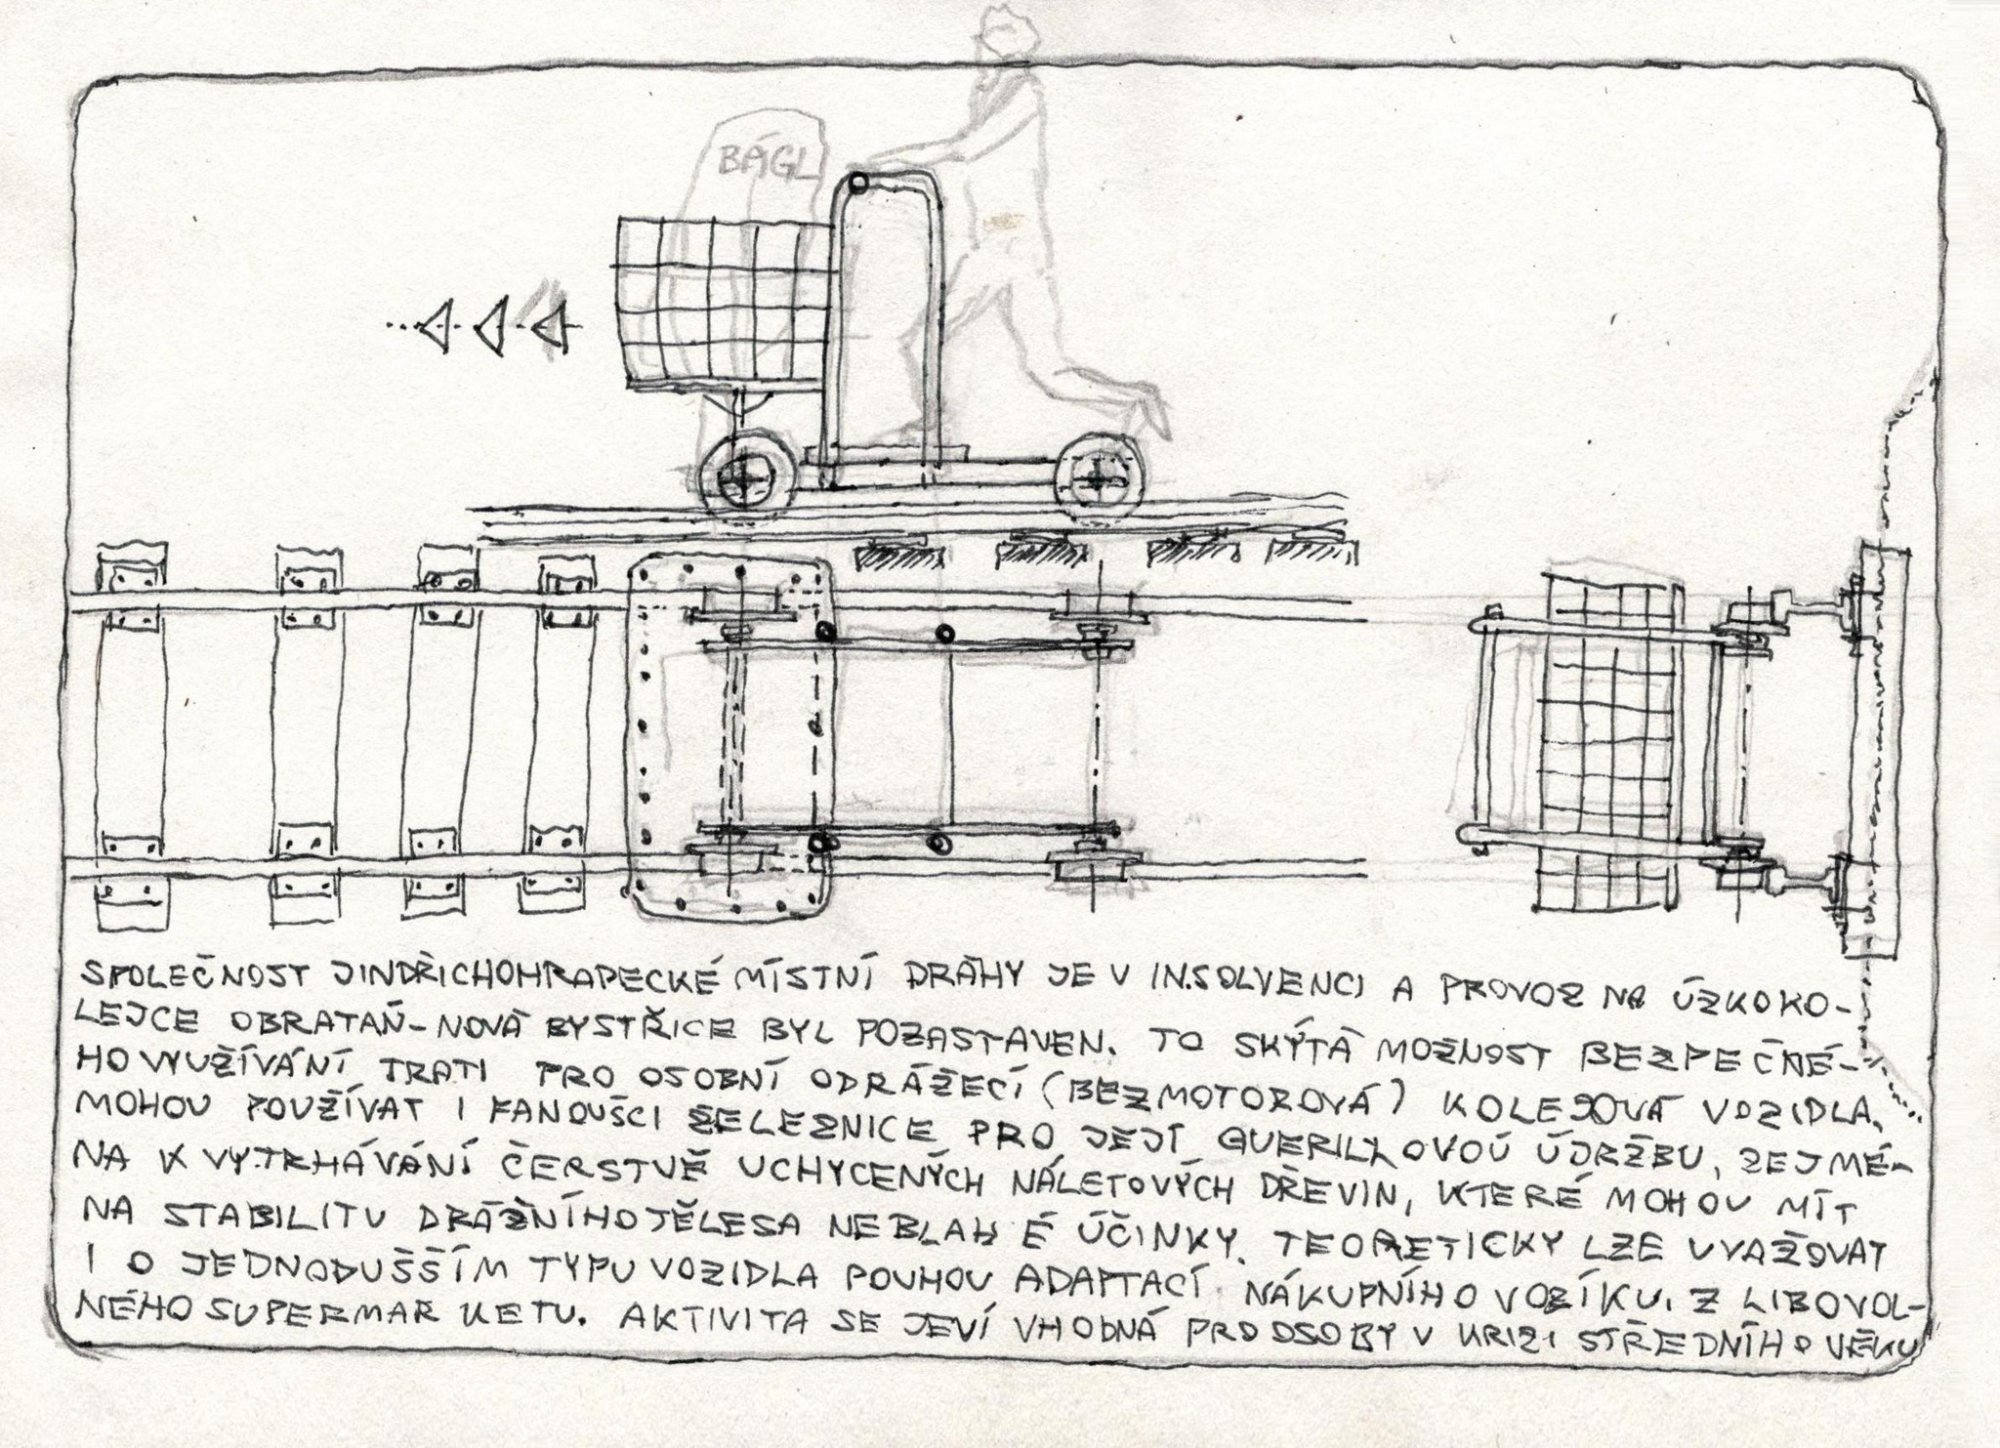 BÁGL
SPOLEČNOST JINDŘICHOHRADECKÉ MÍSTNÍ DRÁHY JE V INSOLVENCI A PROVOZ NA ÚZKOKO-
LEJCE OBRATAŇ-NOVÁ BYSTŘICE BYL POZASTAVEN. TO SKÝTÁ MOŽNOST BEZPEČNÉ-
HO VYUŽÍVÁNÍ TRATI PRO OSOBNÍ ODRÁŽECÍ (BEZMOTOROVÁ) KOLEJOVÁ VOZIDLA.
MOHOU POUŽÍVAT I FANOUŠCI ŽELEZNICE PRO JEJÍ GUERILLOVOU ÚDRŽBU, ZEJMÉ-
NA K VYTRHÁVÁNÍ ČERSTVĚ UCHYCENÝCH NÁLETOVÝCH DŘEVIN, KTERÉ MOHOU MÍT
NA STABILITU DRÁŽNÍHO TĚLESA NEBLAHÉ ÚČINKY. TEORETICKY LZE UVAŽOVAT
I O JEDNODUŠŠÍM TYPU VOZIDLA POUHOU ADAPTACÍ NÁKUPNÍHO VOZÍKU. Z LIBOVOL-
NÉHO SUPERMARKETU. AKTIVITA SE JEVÍ VHODNÁ PRO OSOBY V KRIZI STŘEDNÍHO VĚKU